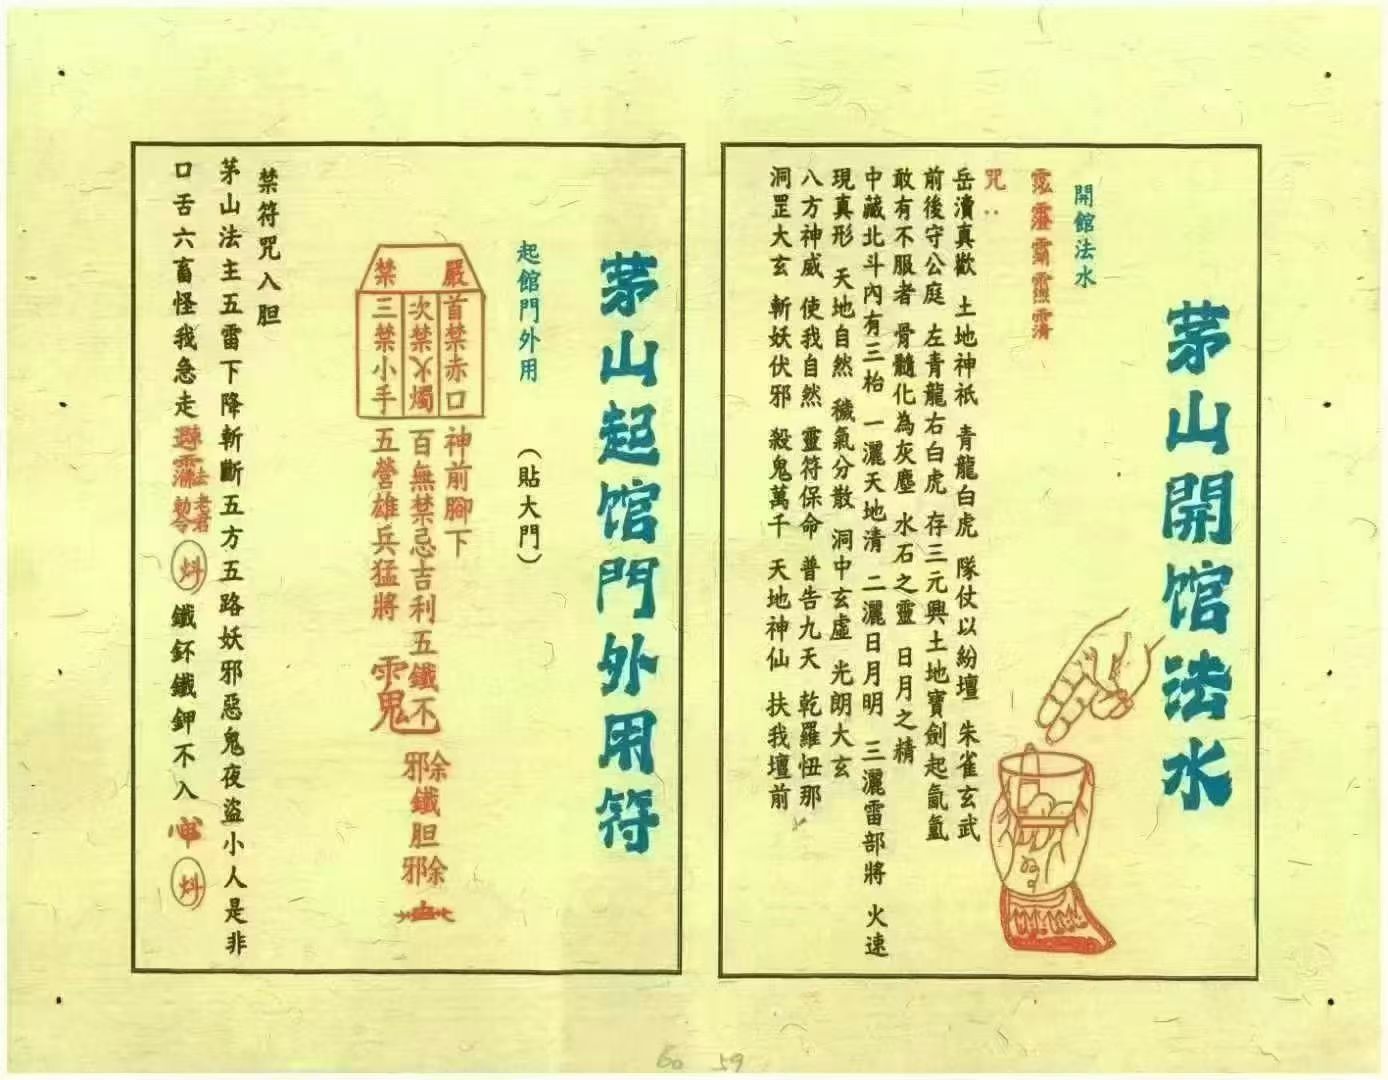 茅山開馆法水
開館法水
咒：
岳瀆真歡 土地神祇 青龍白虎 隊仗以紛壇 朱雀玄武
前後守公庭 左青龍右白虎 存三元興土地寶劍起氤氳
敢有不服者 骨髓化為灰塵 水石之靈 日月之精
中藏北斗內有三枱 一灑天地清 二灑日月明 三灑雷部將 火速
現真形 天地自然 穢氣分散 洞中玄虛 光朗大玄
八方神威 使我自然 靈符保命 普告九天 乾羅忸那
洞罡大玄 斬妖伏邪 殺鬼萬千 天地神仙 扶我壇前
茅山起馆門外用符
起館門外用 （貼大門）
嚴禁
首禁赤口 神前腳下
次禁 燭 百無禁忌吉利五鐵不
三禁小手 五營雄兵猛將
邪除鐵胆邪除
禁符咒入胆
茅山法主五雷下降斬斷五方五路妖邪惡鬼夜盜小人是非
口舌六畜怪我急走 老君 鐵鈈鐵鉀不入
60 59